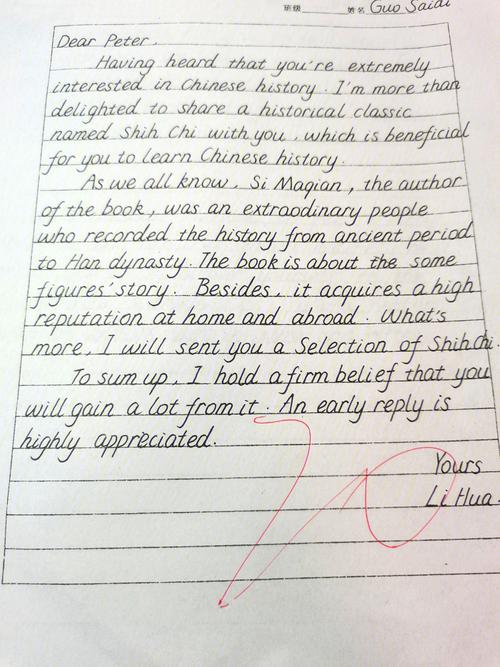 班级 姓名 Guo Saidi
Dear Peter,
Having heard that you're extremely
interested in Chinese history. I'm more than
delighted to share a historical classic
named Shih Chi with you, which is beneficial
for you to learn Chinese history.
As we all know, Si Maqian, the author
of the book, was an extraodinary people
who recorded the history from ancient period
to Han dynasty. The book is about the some
figures' story. Besides, it acquires a high
reputation at home and abroad. What's
more, I will sent you a Selection of Shih Chi.
To sum up, I hold a firm belief that you
will gain a lot from it. An early reply is
highly appreciated.
Yours
Li Hua.